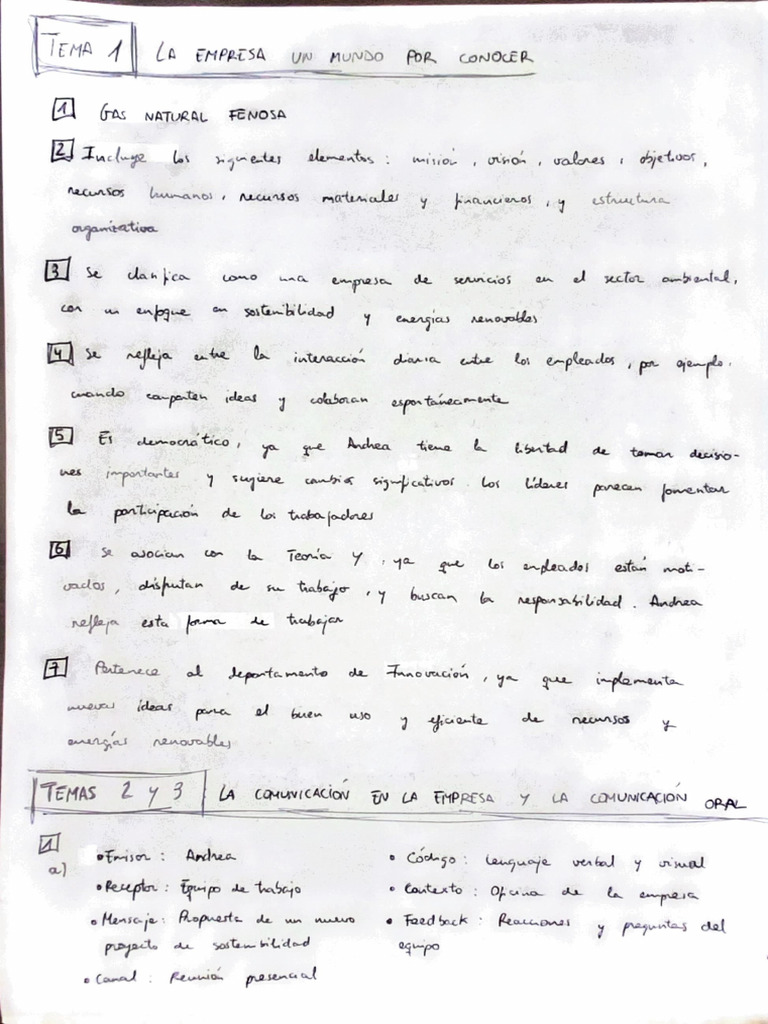 TEMA 1 LA EMPRESA UN MUNDO POR CONOCER
1 GAS NATURAL FENOSA
2 Incluye los siguientes elementos: misión, visión, valores, objetivos,
recursos humanos, recursos materiales y financieros, y estructura
organizativa
3 Se clasifica como una empresa de servicios en el sector ambiental,
con un enfoque en sostenibilidad y energías renovables
4 Se refleja entre la interacción diaria entre los empleados, por ejemplo.
cuando comparten ideas y colaboran espontáneamente
5 Es democrático, ya que Andrea tiene la libertad de tomar decisio-
nes importantes y sugiere cambios significativos. Los líderes parecen fomentar
la participación de los trabajadores
6 Se asocian con la Teoría Y, ya que los empleados están moti-
vados, disfrutan de su trabajo, y buscan la responsabilidad. Andrea
refleja esta forma de trabajar
7 Pertenece al departamento de Innovación, ya que implementa
nuevas ideas para el buen uso y eficiente de recursos y
energías renovables
TEMAS 2 y 3 LA COMUNICACIÓN EN LA EMPRESA Y LA COMUNICACIÓN ORAL
1
a)
• Emisor: Andrea
• Receptor: Equipo de trabajo
• Mensaje: Propuesta de un nuevo
proyecto de sostenibilidad
• Canal: Reunión presencial
• Código: Lenguaje verbal y visual
• Contexto: Oficina de la empresa
• Feedback: Reacciones y preguntas del
equipo